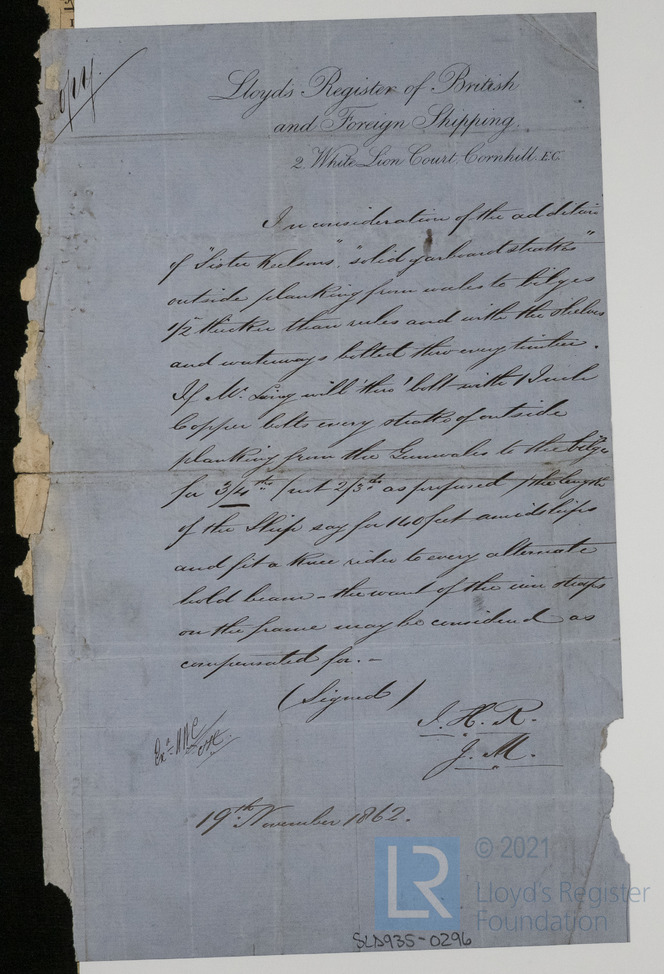 Copy.
Lloyds Register of British
and Foreign Shipping.
2. White Lion Court, Cornhill. E.C.
In consideration of the addition
of "Sister Keelsons", "solid garboard strakes"
outside planking from wales to bilges
1/2 thicker than rules and with the shelves
and waterways bolted thro every timber.
If Mr. will 'thro' bolt with 1 Inch
Copper bolts every strake of outside
planking from the Gunwales to the bilge
for 3/4ths (not 2/3ds as proposed) the length
of the Ship say for 140 feet amidships
and fit a knee rider to every alternate
hold beam - the want of the iron straps
on the frame may be considered as
compensated for. -
(Signed)
J. H. R.
J. M.
Exd.
19th November 1862.
LR
© 2021
Lloyd's Register
Foundation
SLD935-0296